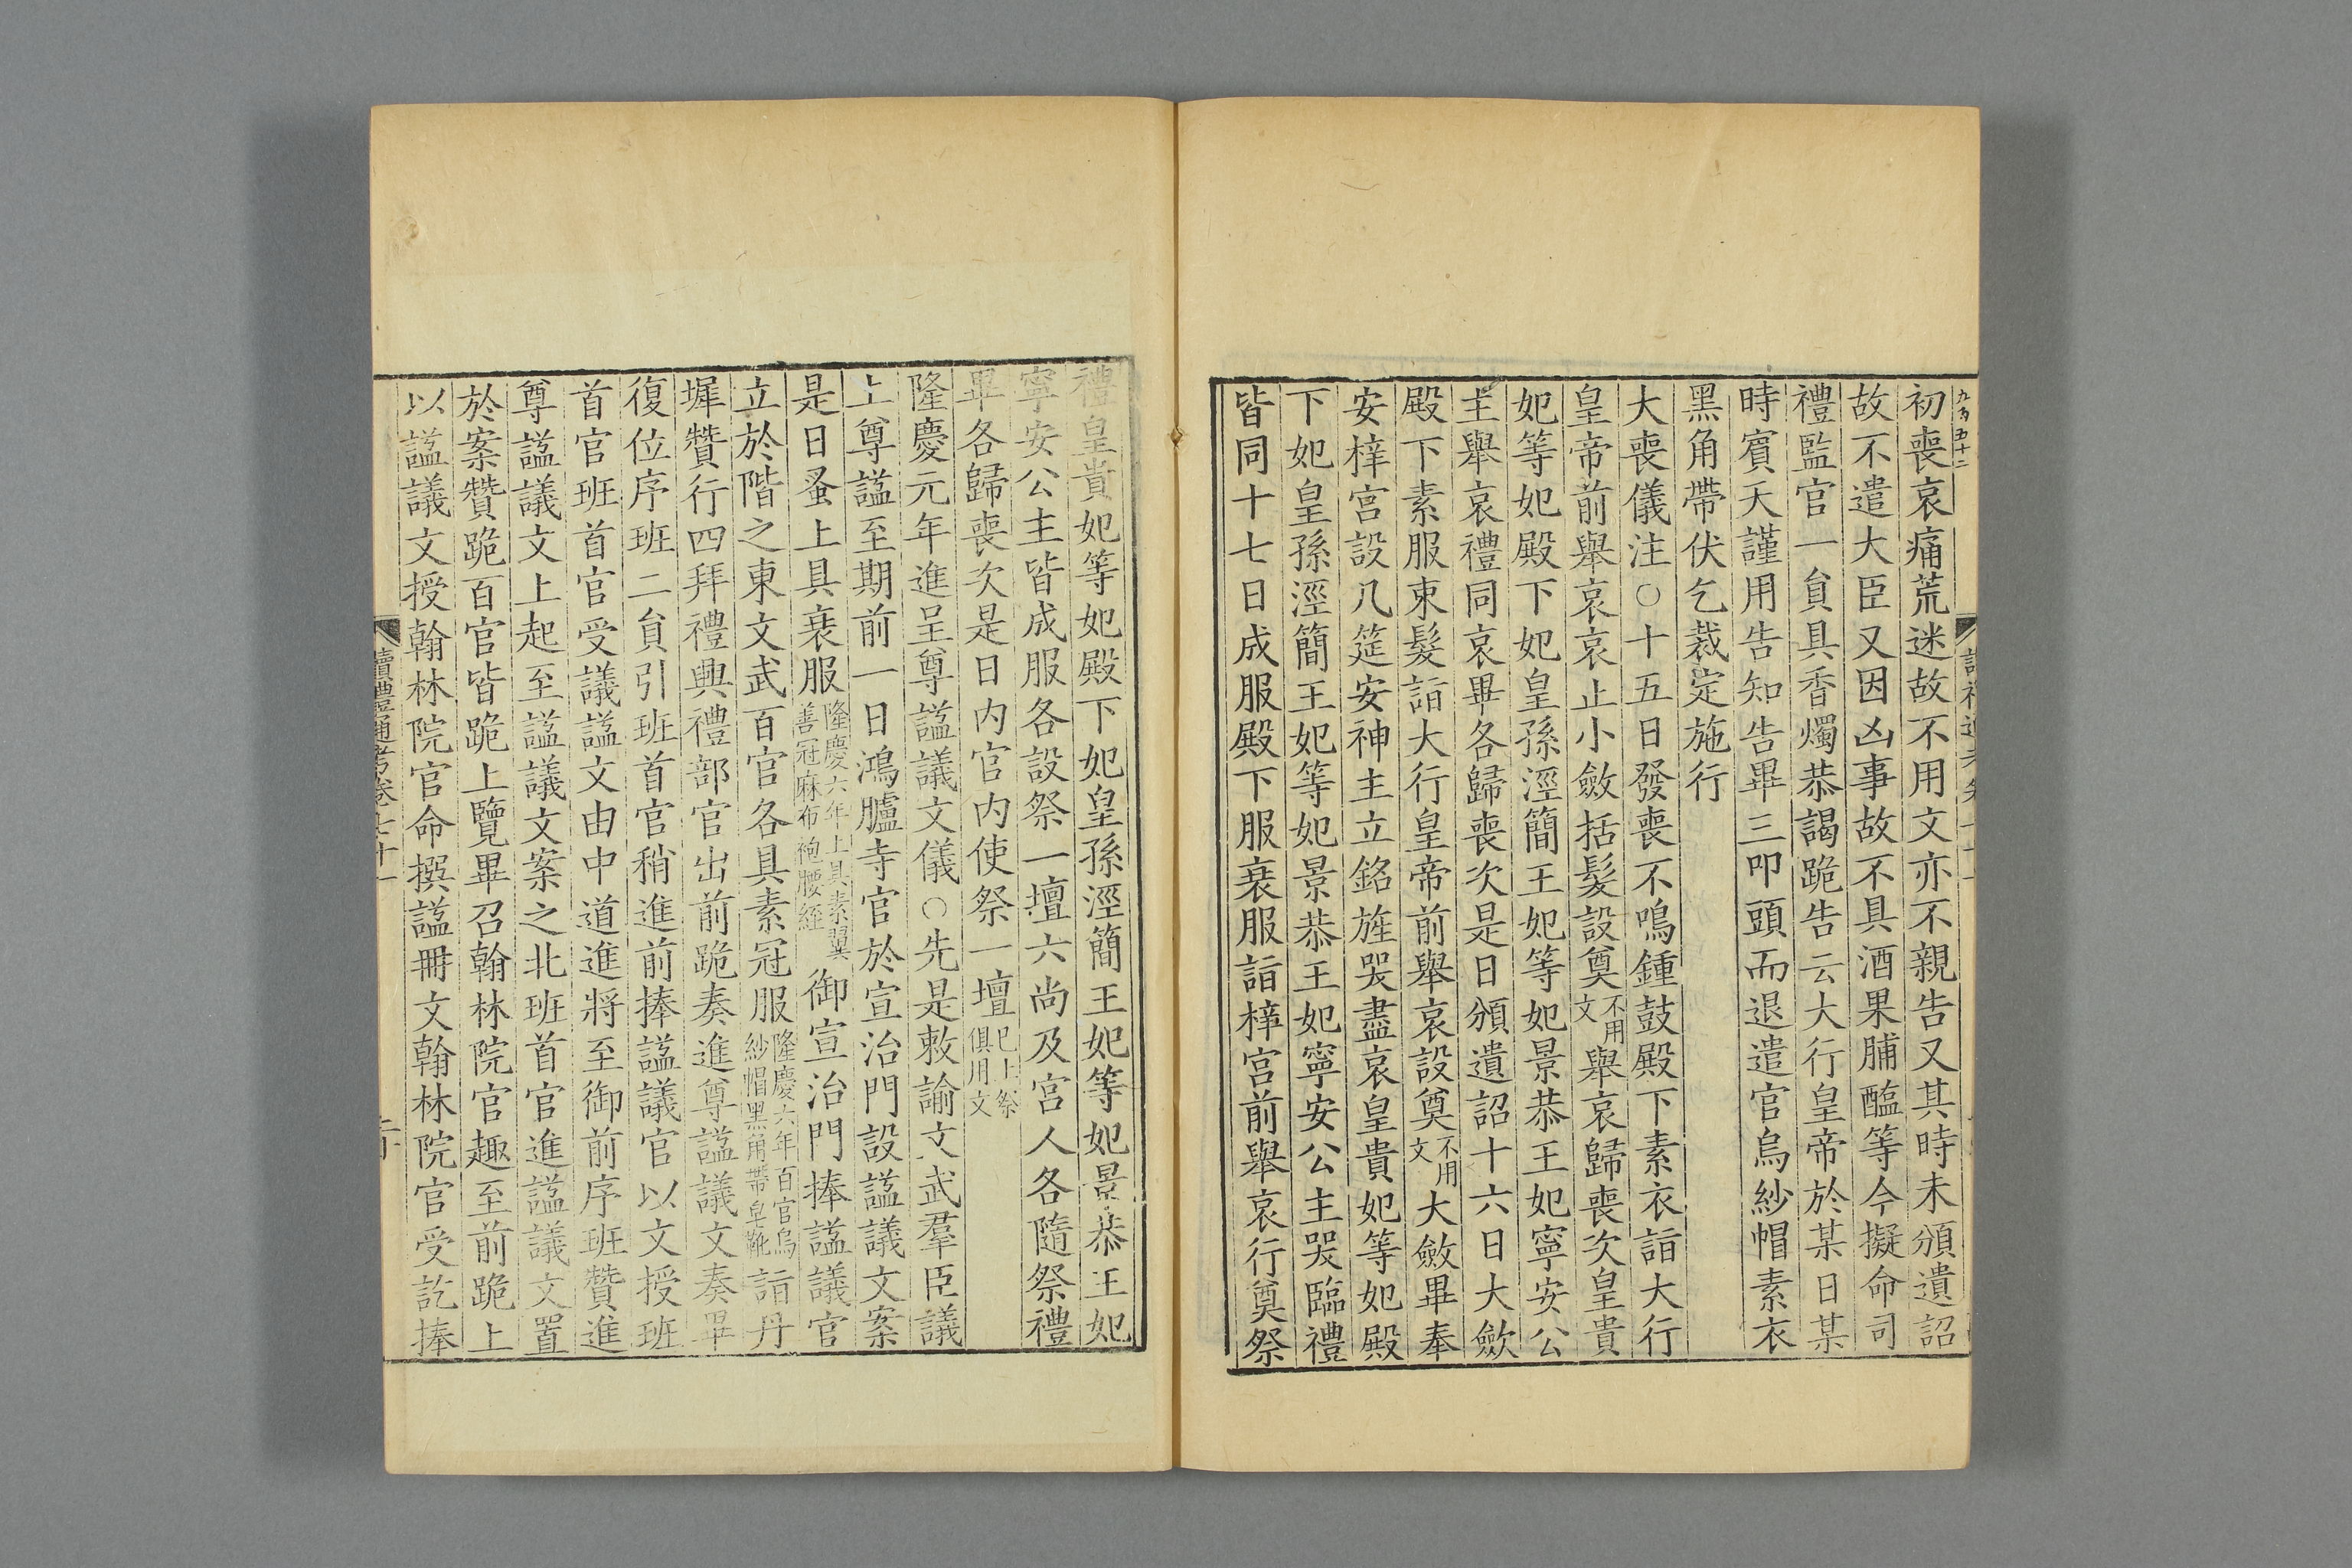 初喪哀痛荒迷故不用文亦不親告又其時未頒遺詔
故不遣大臣又因凶事故不具酒果脯醢等今擬命司
禮監官一員具香燭恭謁跪告云大行皇帝於某日某
時賓天謹用告知告畢三叩頭而退遣官烏紗帽素衣
黑角帶伏乞裁定施行
大喪儀注○十五日發喪不鳴鍾鼓殿下素衣詣大行
皇帝前舉哀哀止小斂括髮設奠不用文舉哀歸喪次皇貴
妃等妃殿下妃皇孫涇簡王妃等妃景恭王妃寧安公
主舉哀禮同哀畢各歸喪次是日頒遺詔十六日大斂
殿下素服束髮詣大行皇帝前舉哀設奠不用文大斂畢奉
安梓宮設几筵安神主立銘旌哭盡哀皇貴妃等妃殿
下妃皇孫涇簡王妃等妃景恭王妃寧安公主哭臨禮
皆同十七日成服殿下服衰服詣梓宮前舉哀行奠祭
禮皇貴妃等妃殿下妃皇孫涇簡王妃等妃景恭王妃
寧安公主皆成服各設祭一壇六尚及宮人各隨祭禮
畢各歸喪次是日內官內使祭一壇已上祭俱用文
隆慶元年進呈尊諡議文儀○先是敕諭文武羣臣議
上尊諡至期前一日鴻臚寺官於宣治門設諡議文案
是日蚤上具衰服隆慶六年上具素翼善冠麻布袍腰絰御宣治門捧諡議官
立於階之東文武百官各具素冠服隆慶六年百官烏紗帽黑角帶皂靴詣丹
墀贊行四拜禮興禮部官出前跪奏進尊諡議文奏畢
復位序班二員引班首官稍進前捧諡議官以文授班
首官班首官受議諡文由中道進將至御前序班贊進
尊諡議文上起至諡議文案之北班首官進諡議文置
於案贊跪百官皆跪上覽畢召翰林院官趣至前跪上
以諡議文授翰林院官命撰諡冊文翰林院官受訖捧
讀禮通考卷七十一